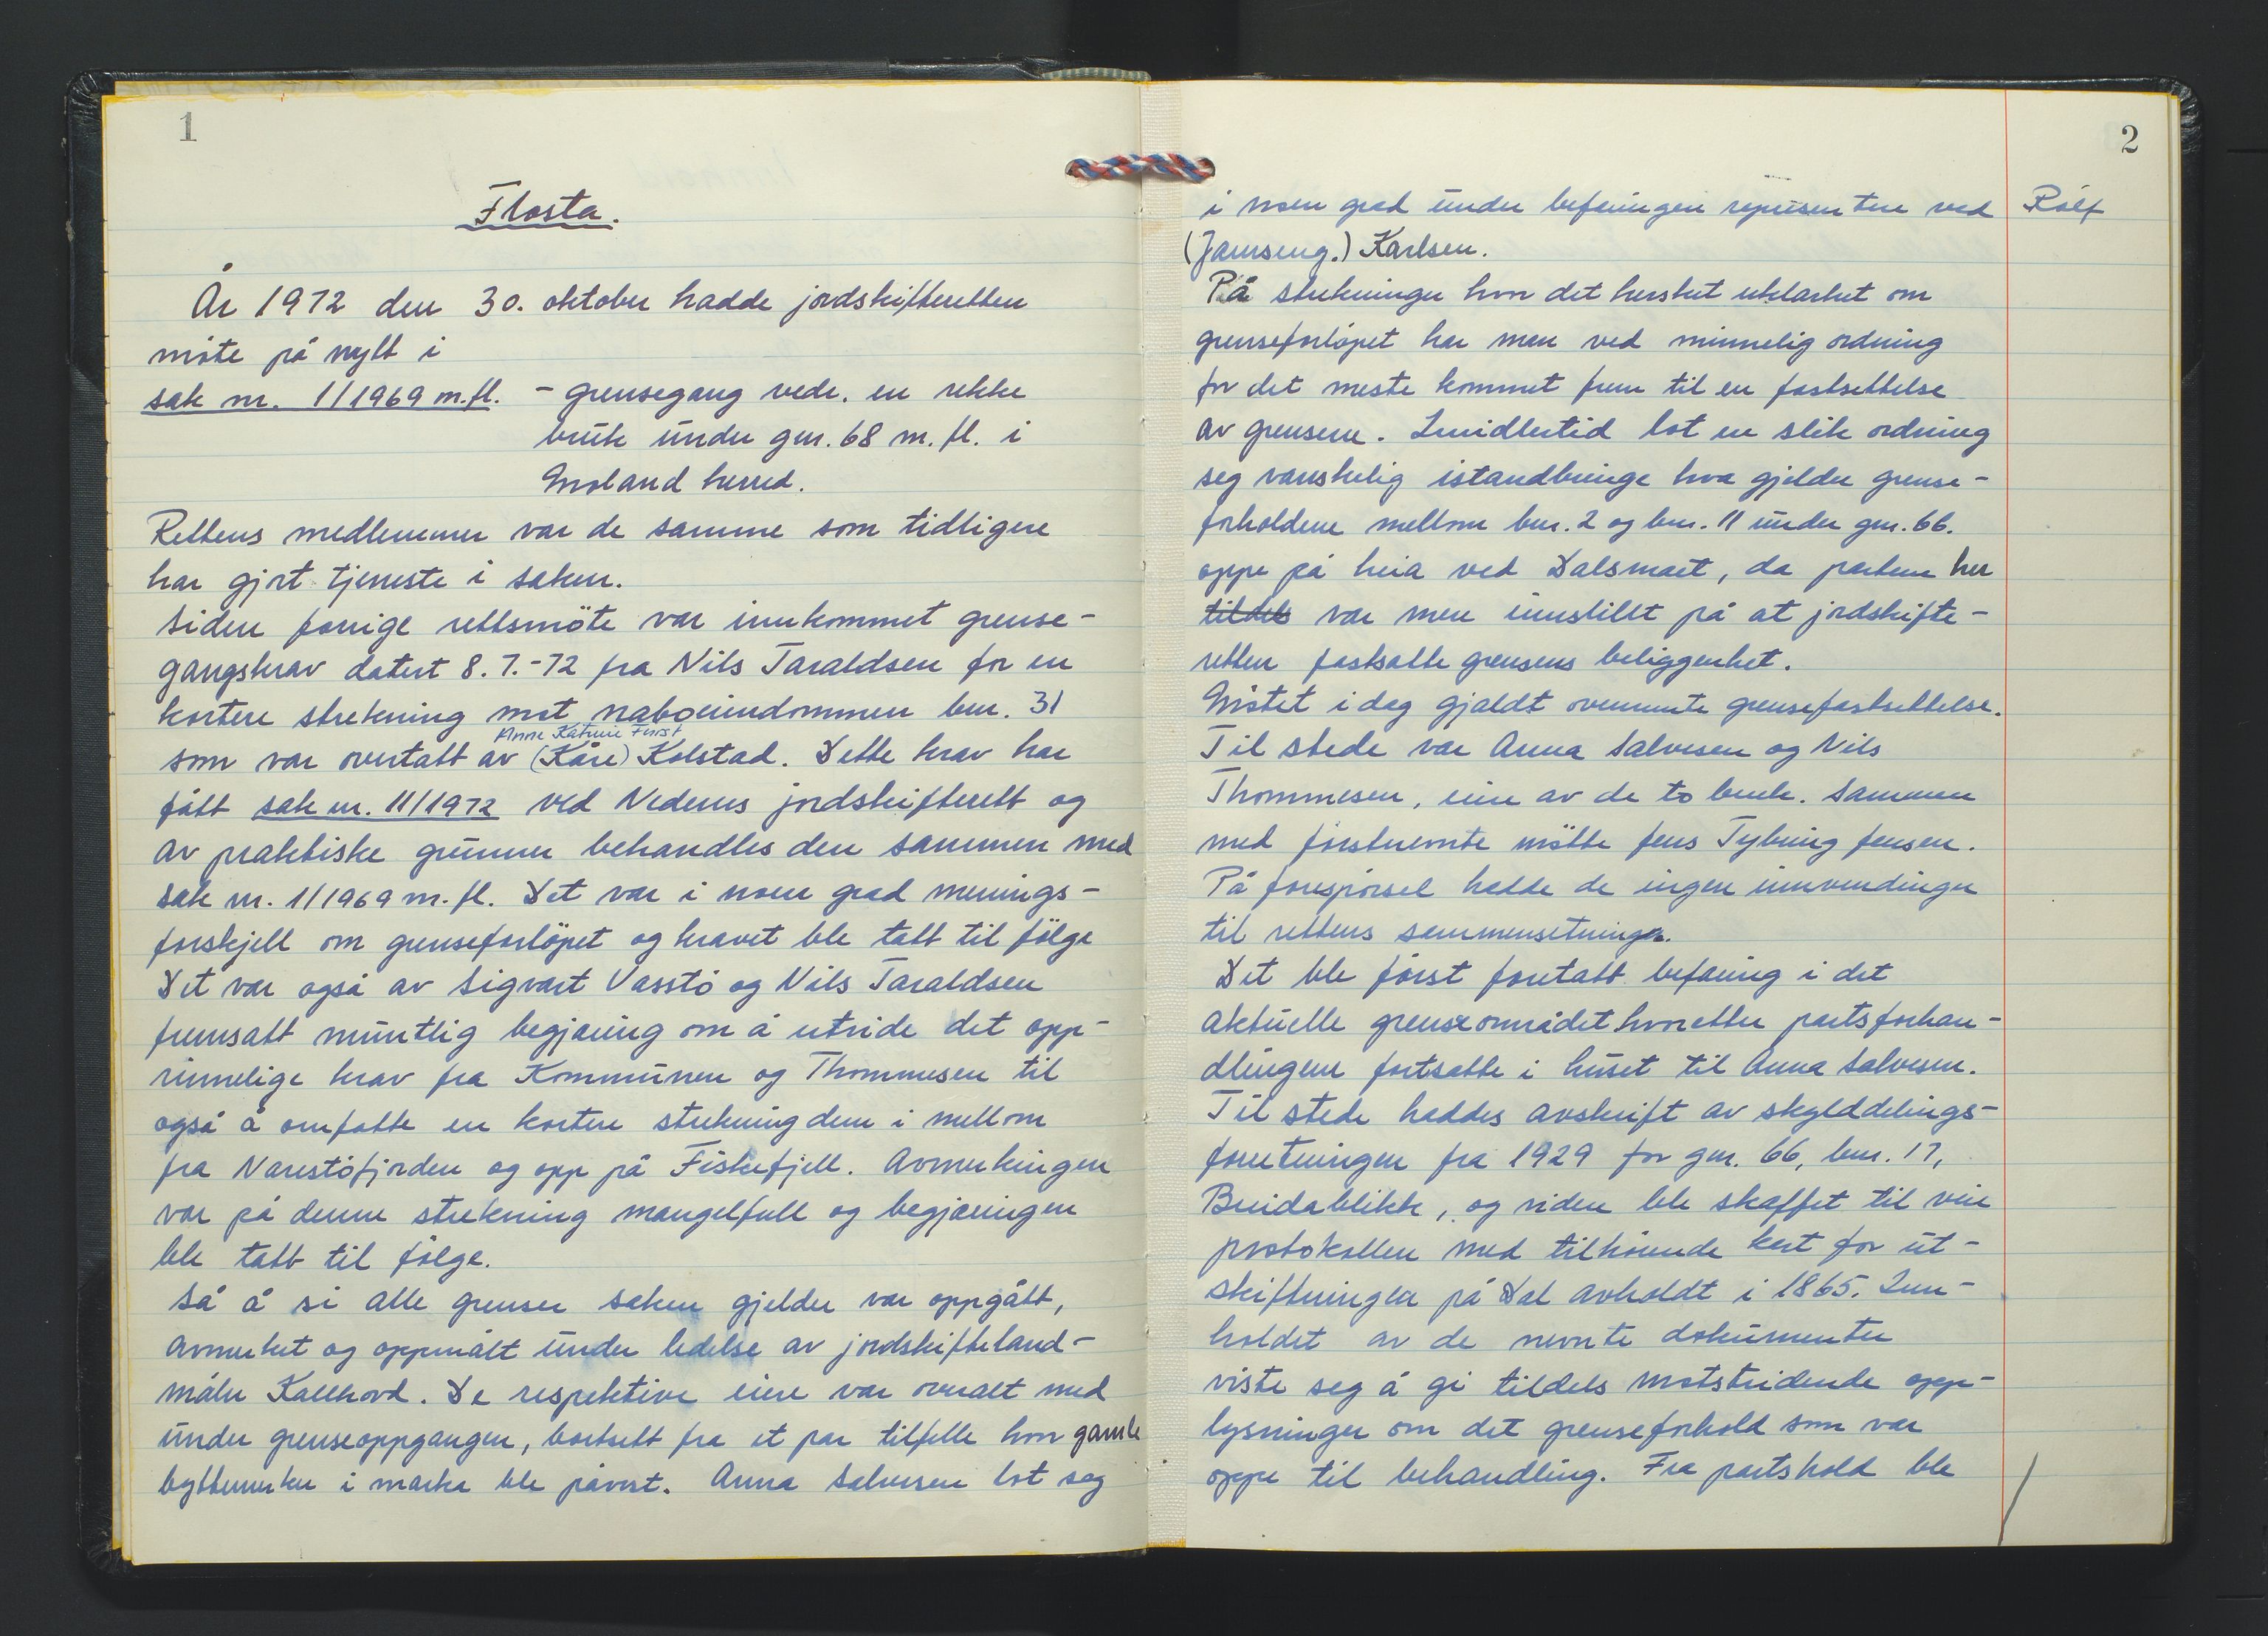 1
Flosta.
År 1972 den 30. oktober hadde jordskifteretten
møte på nytt i
sak nr. 1/1969 m.fl. - grensegang vedr. en rekke
bruk under gnr. 68 m. fl. i
Moland herred.
Rettens medlemmer var de samme som tidligere
har gjort tjeneste i saken.
Siden forrige rettsmöte var innkommet grense-
gangskrav datert 8.7.-72 fra Nils Taraldsen for en
kortere strekning mot naboeiendommen bnr. 31
Anne Katrine Furst
som var overtatt av (Kåre) Kolstad. Dette krav har
fått sak nr. 11/1972 ved Nedenes jordskifterett og
av praktiske grunner behandles den sammen med
sak nr. 1/1969 m. fl. Det var i noen grad menings-
forskjell om grenseforlöpet og kravet ble tatt til fölge
Det var også av Sigvart Vasstö og Nils Taraldsen
fremsatt muntlig begjæring om å utvide det opp-
rinnelige krav fra Kommunen og Thommesen til
også å omfatte en kortere strekning dem i mellom
fra Narestöfjorden og opp på Fiskefjell. Avmerkingen
var på denne strekning mangelfull og begjæringen
ble tatt til fölge.
Så å si alle grenser saken gjelder var oppgått,
avmerket og oppmålt under ledelse av jordskifteland-
måler Kallhovd. De respektive eiere var overalt med
under grenseoppgangen, bortsett fra et par tilfelle hvor gamle
byttemerker i marka ble påvist. Anna Salvesen lot seg
2
i noen grad under befaringen representere ved Rolf
(Jamseng.) Karlsen.
På strekninger hvor det hersket uklarhet om
grenseforlöpet har men ved minnelig ordning
for det meste kommet frem til en fastsettelse
av grensene. Imidlertid lot en slik ordning
seg vanskelig istandbringe hva gjelder grense-
forholdene mellom bnr. 2 og bnr. 11 under gnr. 66.
oppe på heia ved Dalsmært, da partene her
tildels var mere innstillt på at jordskifte-
retten fastsatte grensens beliggenhet.
Mötet i dag gjaldt ovennevnte grensefastsettelse.
Til stede var Anna Salvesen og Nils
Thommesen, eiere av de to bruk. Sammen
med förstnevnte mötte Jens Tybring Jensen.
På forespörsel hadde de ingen innvendinger
til rettens sammensetning.
Det ble först foretatt befaring i det
aktuelle grenseområdet hvoretter partsforhan-
dlingene fortsatte i huset til Anna Salvesen.
Til stede haddes avskrift av skylddelings-
forretningen fra 1929 for gnr. 66, bnr. 17,
Breidablikk, og siden ble skaffet til veie
protokollen med tilhörende kart for ut-
skiftningen på Dal avholdt i 1865. Inn-
holdet av de nevnte dokumenter
viste seg å gi tildels motstridende opp-
lysninger om det grenseforhold som var
oppe til behandling. Fra partshold ble